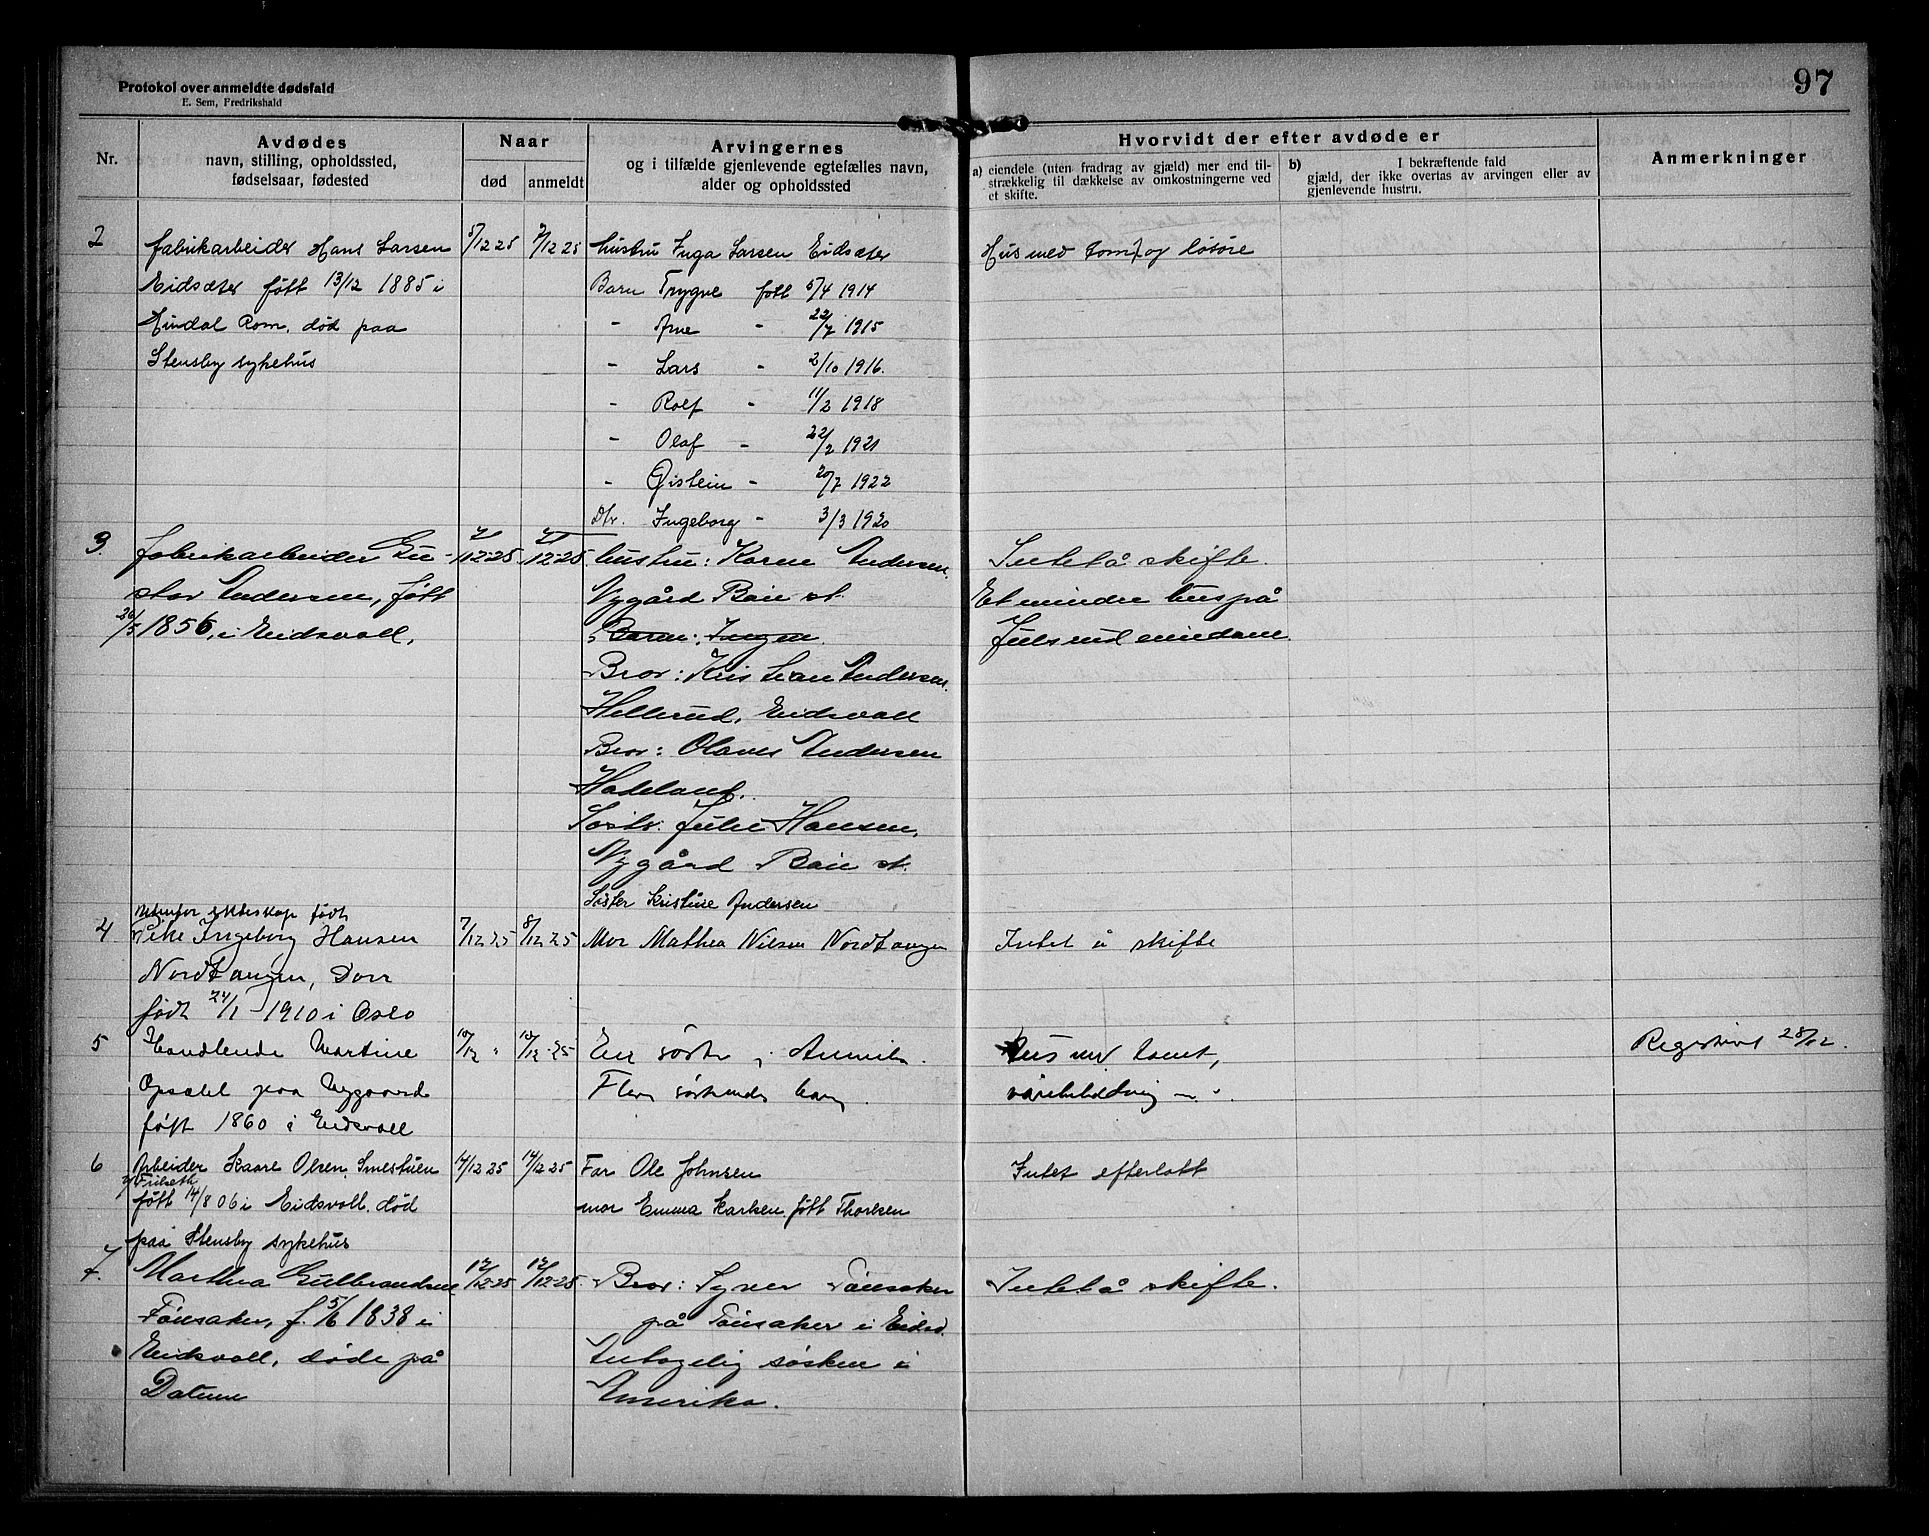 97
Protokol over anmeldte dødsfald
E. Sem, Fredrikshald
Nr.
Avdødes
navn, stilling, opholdssted,
fødselsaar, fødested
Naar
død
anmeldt
Arvingernes
og i tilfælde gjenlevende egtefælles navn,
alder og opholdssted
Hvorvidt der efter avdøde er
a) eiendele (uten fradrag av gjæld) mer end til-
strækkelig til dækkelse av omkostningerne ved
et skifte.
b) I bekræftende fald
gjæld, der ikke overtas av arvingen eller av
gjenlevende hustru.
Anmerkninger
2 fabrikarbeider Hans Larsen 5/12 25 7/12 25 hustru Inga Larsen Eidsæter Hus med tomt og løsøre
Eidsæter født 13/12 1885 i Barn Trygve født 5/4 1914
Hurdal Rom. død paa " Arne - 22/7 1915
Stensby sykehus " Lars - 2/10 1916.
" Rolf - 11/2 1918
" Olaf - 22/2 1921
" Øistein - 20/7 1922
Dtr. Ingeborg - 3/3 1920
3. fabrikarbeider Gu- 7/12-25 7/12-25. hustru: Karen Andersen. Intet å skifte.
stav Andersen, født Nygård Bøn st. Et mindre hus på
20/5 1856, i Eidsvoll, Barn: Ingen. Julsrud eiendom.
Bror: Kristian Andersen.
Hellerud, Eidsvoll
Bror: Olaves Andersen
Hadeland.
Søster: Julie Hansen,
Nygård Bøn st.
Søster Kristine Andersen
utenfor ekteskap født
4 Pike Ingeborg Hansen 7/12 25 8/12 25 Mor Mathea Nilsen Nordtangen Intet å skifte
Nordtangen, Dorr
født 24/1 1910 i Oslo
5 Handlende Martine 10/12 " 10/12-25 En søster, Hus med tomt, Registrert 28/12.
Opsahl paa Nygaard Flere søskendes barn.
født 1860 i Eidsvoll
6 Arbeider Kaare Olsen Smestuen 14/12 25 14/12 25 Far Ole Johnsen Intet efterlatt
født 14/8 06 i Eidsvoll. død mor Emma Karlsen født Thoresen
paa Stensby sykehus
7. Marthea Gulbrandsen 12/12-25 12/12-25 Bror: Syver Tønsaker Intet å skifte.
Tønsaker, f. 5/6 1838 i på Tønsaker i Eidsv.
Eidsvoll, døde på Antagelig søsken i
Amerika.